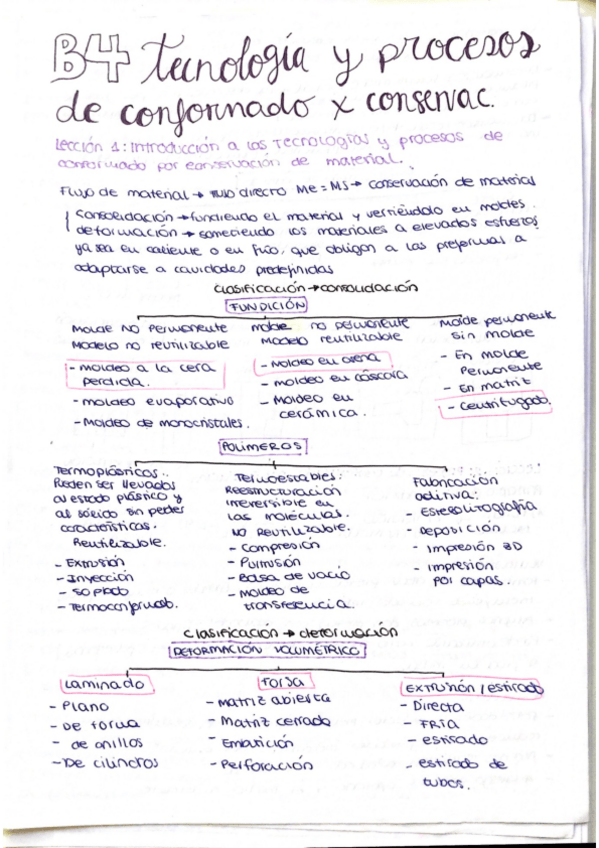 B4 tecnología y procesos
de conformado x conservac.
Lección 1: Introducción a las Tecnologías y procesos de
conformado por conservación de material.
Flujo de material → flujo directo Me = MS → conservación de materias
Consolidación → fundiendo el material y vertiéndolo en moldes.
deformación → sometiendo los materiales a elevados esfuerzos
ya sea en caliente o en frío, que obligan a las preformas a
adaptarse a cavidades predefinidas
Clasificación → consolidación
FUNDICIÓN
Molde no permanente
Modelo no reutilizable
- moldeo a la cera
perdida.
- moldeo evaporativo
- Moldeo de monocristales.
molde no permanente
Modelo reutilizable
- Moldeo en arena
- moldeo en cáscara
- Moldeo en
cerámica.
Molde permanente
sin molde
- En molde
Permanente
- En matriz
- Centrifugado.
POLÍMEROS
Termoplásticos:
Pueden ser llevados
al estado plástico y
al sólido sin perder
características.
Reutilizable.
- Extrusión
- Inyección
- Soplado
- Termoconformado.
Termoestables:
Reestructuración
irreversible en
las moléculas.
NO Reutilizable.
- Compresión
- Pultrusión
- Bolsa de vacío
- Moldeo de
transferencia.
Fabricación
aditiva:
- Estereolitografía
- Deposición
- Impresión 3D
- Impresión
por capas.
Clasificación → deformación
DEFORMACIÓN VOLUMÉTRICO
Laminado
- Plano
- De forma
- de anillos
- De cilindros
Forja
- Matriz abierta
- Matriz cerrada
- Embutición
- Perforación
Extrusión / estirado
- Directa
- FRÍA
- estirado
- estirado de
tubos.